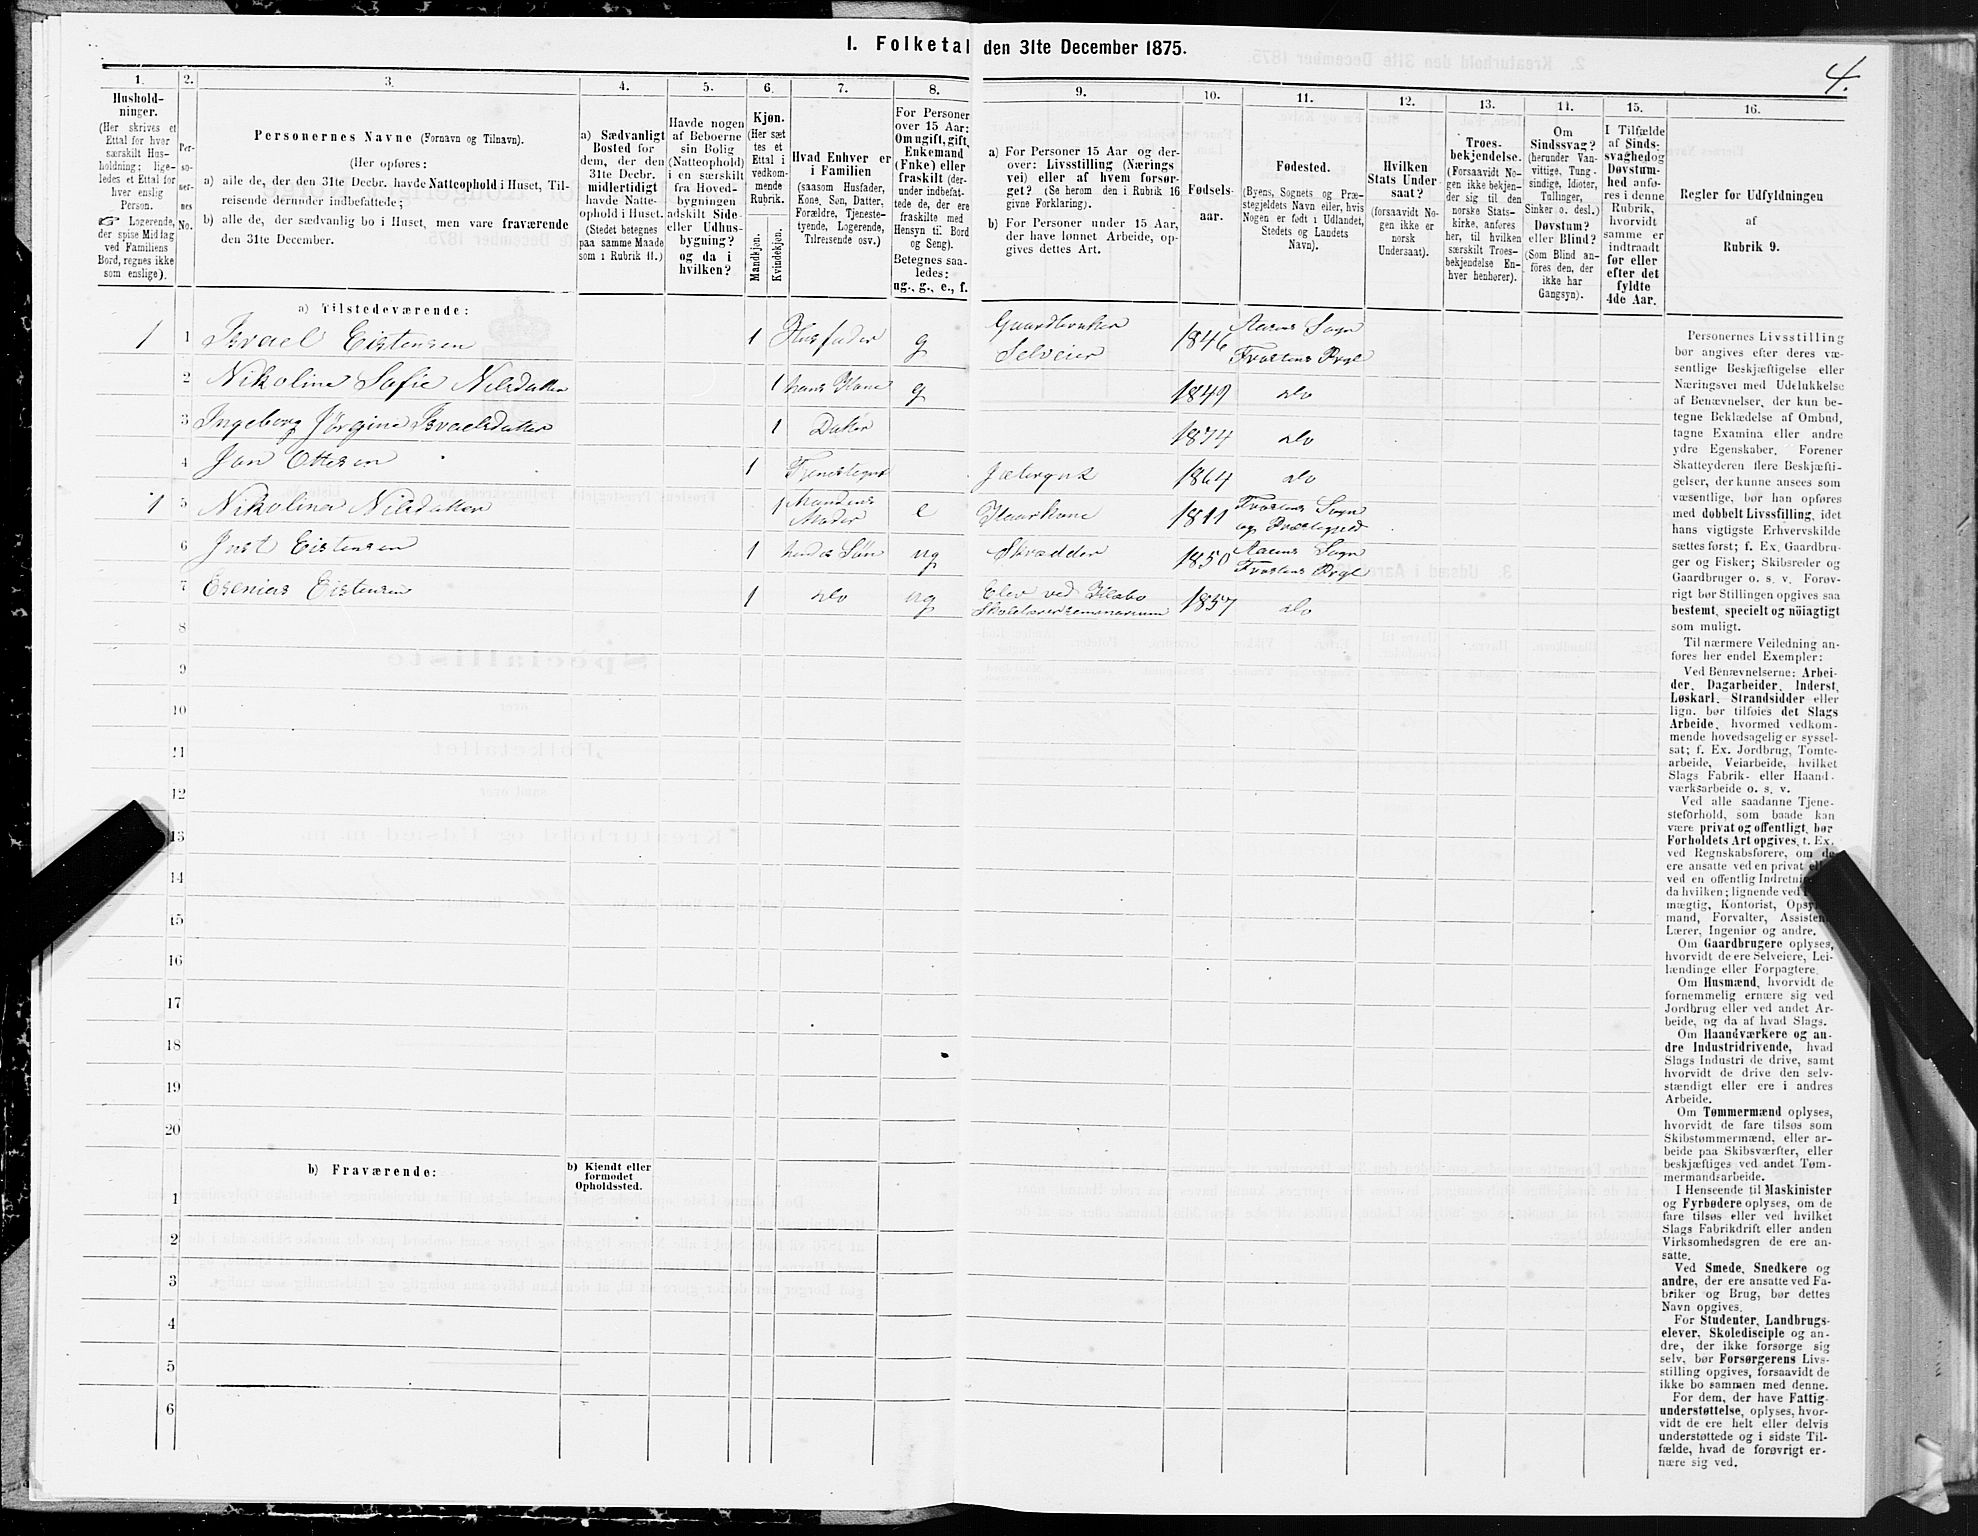 I. Folketal den 31te December 1875.
4.
1.
Hushold-
ninger.
(Her skrives et
Ettal for hver
særskilt Hus-
holdning; lige-
ledes et Ettal for
hver enslig
Person.
☞ Logerende,
der spise Middag
ved Familiens
Bord, regnes ikke
som enslige).
2.
Per-
so-
ner-
nes
No.
3.
Personernes Navne (Fornavn og Tilnavn).
(Her opføres:
a) alle de, der den 31te Decbr. havde Natteophold i Huset, Til-
reisende derunder indbefattede;
b) alle de, der sædvanlig bo i Huset, men vare fraværende
den 31te December.
4.
a) Sædvanligt
Bosted for
dem, der den
31te Decbr.
midlertidigt
havde Natte-
ophold i Huset.
(Stedet betegnes
paa samme Maade
som i Rubrik 11.)
5.
Havde nogen
af Beboerne
sin Bolig
(Natteophold)
i en særskilt
fra Hoved-
bygningen
adskilt Side-
eller Udhus-
bygning?
og da i
hvilken?
6.
Kjøn.
(Her sæt-
tes et
Ettal i
vedkom-
mende
Rubrik.
Mandkjøn.
Kvindekjøn.
7.
Hvad Enhver er
i Familien
(saasom Husfader,
Kone, Søn, Datter,
Forældre, Tjeneste-
tyende, Logerende,
Tilreisende osv.)
8.
For Personer
over 15 Aar:
Om ugift, gift,
Enkemand
(Enke) eller
fraskilt (der-
under indbefat-
tede de, der ere
fraskilte med
Hensyn til Bord
og Seng).
Betegnes saa-
ledes:
ug., g., e., f.
9.
a) For Personer 15 Aar og der-
over: Livsstilling (Nærings-
vei) eller af hvem forsør-
get? (Se herom den i Rubrik 16
givne Forklaring).
b) For Personer under 15 Aar,
der have lønnet Arbeide, op-
gives dettes Art.
10.
Fødsels-
aar.
11.
Fødested.
(Byens, Sognets og Præ-
stegjeldets Navn eller, hvis
Nogen er født i Udlandet,
Stedets og Landets
Navn).
12.
Hvilken
Stats Under-
saat?
(forsaavidt No-
gen ikke er
norsk
Undersaat).
13.
Troes-
bekjendelse.
(Forsaavidt No-
gen ikke bekjen-
der sig til den
norske Stats-
kirke, anføres
her, til hvilken
særskilt Troes-
bekjendelse En-
hver henhører).
14.
Om
Sindssvag?
(herunder Van-
vittige, Tung-
sindige, Idioter,
Tullinger,
Sinker o. desl.)
Døvstum?
eller Blind?
(Som Blind an-
føres den, der
ikke har
Gangsyn).
15.
I Tilfælde
af Sinds-
svaghed og
Døvstum-
hed anfø-
res i denne
Rubrik,
hvorvidt
samme er
indtraadt
før eller
efter det
fyldte
4de Aar.
16.
Regler for Udfyldningen
af
Rubrik 9.
a) Tilstedeværende:
1 1 Israel Eistensen 1 Husfader g Gaardbruker Selveier 1846 Aasens Sogn Frostens Prgl
2 Nikoline Sofie Nilsdatter 1 hans Kone g 1849 do
3 Ingeborg Jørgine Israelsdatter 1 Datter 1874 do
4 Jon Ottesen 1 Tjenestegut Jætergut 1864 do
1 5 Nikolina Nilsdatter 1 Mandens Moder e Kaarkone 1811 Frostens Sogn og Præstegjeld
6 Just Eistensen 1 hendes Søn ug Skrædder 1850 Aasens Sogn Frostens Prgl
7 Esenias Eistensen 1 do ug Elev ved Klæbo Skolelærerseminarium 1857 do
8
9
10
11
12
13
14
15
16
17
18
19
20
b) Fraværende:
b) Kjendt eller
formodet
Opholdssted.
1
2
3
4
5
6
Personernes Livsstilling
bør angives efter deres væ-
sentlige Beskjæftigelse eller
Næringsvei med Udelukkelse
af Benævnelser, der kun be-
tegne Beklædelse af Ombud,
tagne Examina eller andre
ydre Egenskaber. Forener
Skatteyderen flere Beskjæfti-
gelser, der kunne ansees som
væsentlige, bør han opføres
med dobbelt Livsstilling, idet
hans vigtigste Erhvervskilde
sættes først; f. Ex. Gaardbru-
ger og Fisker; Skibsreder og
Gaardbruger o. s. v. Forøv-
rigt bør Stillingen opgives saa
bestemt, specielt og nöiagtigt
som muligt.
Til nærmere Veiledning an-
føres her endel Exempler:
Ved Benævnelserne: Arbei-
der, Dagarbeider, Inderst,
Løskarl, Strandsidder eller
lign. bør tilføies det Slags
Arbeide, hvormed vedkom-
mende hovedsagelig er syssel-
sat; f. Ex. Jordbrug, Tomte-
arbeide, Veiarbeide, hvilket
Slags Fabrik- eller Haand-
værksarbeide o. s. v.
Ved alle saadanne Tjene-
steforhold, som baade kan
være privat og offentligt, bør
Forholdets Art opgives, f. Ex.
ved Regnskabsførere, om de
ere ansatte ved en privat eller
ved en offentlig Indretning
da hvilken; lignende ved
mægtig, Kontorist, Opsyns-
mand, Forvalter, Assistent,
Lærer, Ingeniør og andre.
Om Gaardbrugere oplyses,
hvorvidt de ere Selveiere, Lei-
lændinge eller Forpagtere.
Om Husmænd, hvorvidt de
fornemmelig ernære sig ved
Jordbrug eller ved andet Ar-
beide, og da af hvad Slags.
Om Haandværkere og an-
dre Industridrivende, hvad
Slags Industri de drive, samt
hvorvidt de drive den selv-
stændigt eller ere i andres
Arbeide.
Om Tømmermænd oplyses,
hvorvidt de fare tilsøs som
Skibstømmermænd, eller ar-
beide paa Skibsværfter, eller
beskjæftiges ved andet Tøm-
mermandsarbeide.
I Henseende til Maskinister
og Fyrbødere oplyses, om de
fare tilsøs eller ved hvilket
Slags Fabrikdrift eller anden
Virksomhedsgren de ere an-
satte.
Ved Smede, Snedkere og
andre, der ere ansatte ved Fa-
briker og Brug, bør dettes
Navn opgives.
For Studenter, Landbrugs-
elever, Skoledisciple og an-
dre, der ikke forsørge sig
selv, bør Forsørgerens Livs-
stilling opgives, forsaavidt de
ikke bo sammen med denne.
For dem, der have Fattig-
understøttelse, oplyses, hvor-
vidt de ere helt eller delvis
understøttede og i sidste Til-
fælde, hvad de forøvrigt er-
nære sig ved.